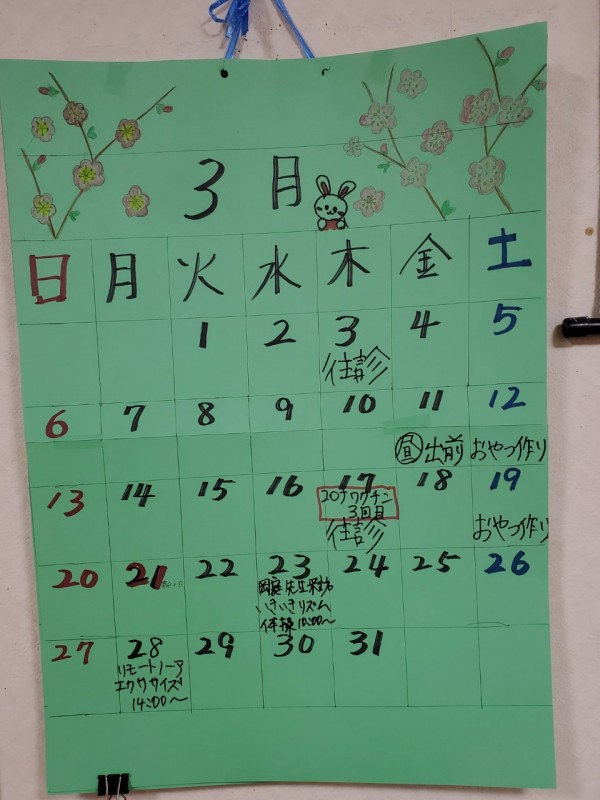 3月
日 月 火 水 木 金 土
1 2 3 4 5
往診
6 7 8 9 10 11 12
昼 出前 おやつ作り
13 14 15 16 17 18 19
コロナワクチン
3回目
往診 おやつ作り
20 21 22 23 24 25 26
先生来訪
いきいきリズム
体操10:00〜
27 28 29 30 31
リモートノーア
エクササイズ
14:00〜